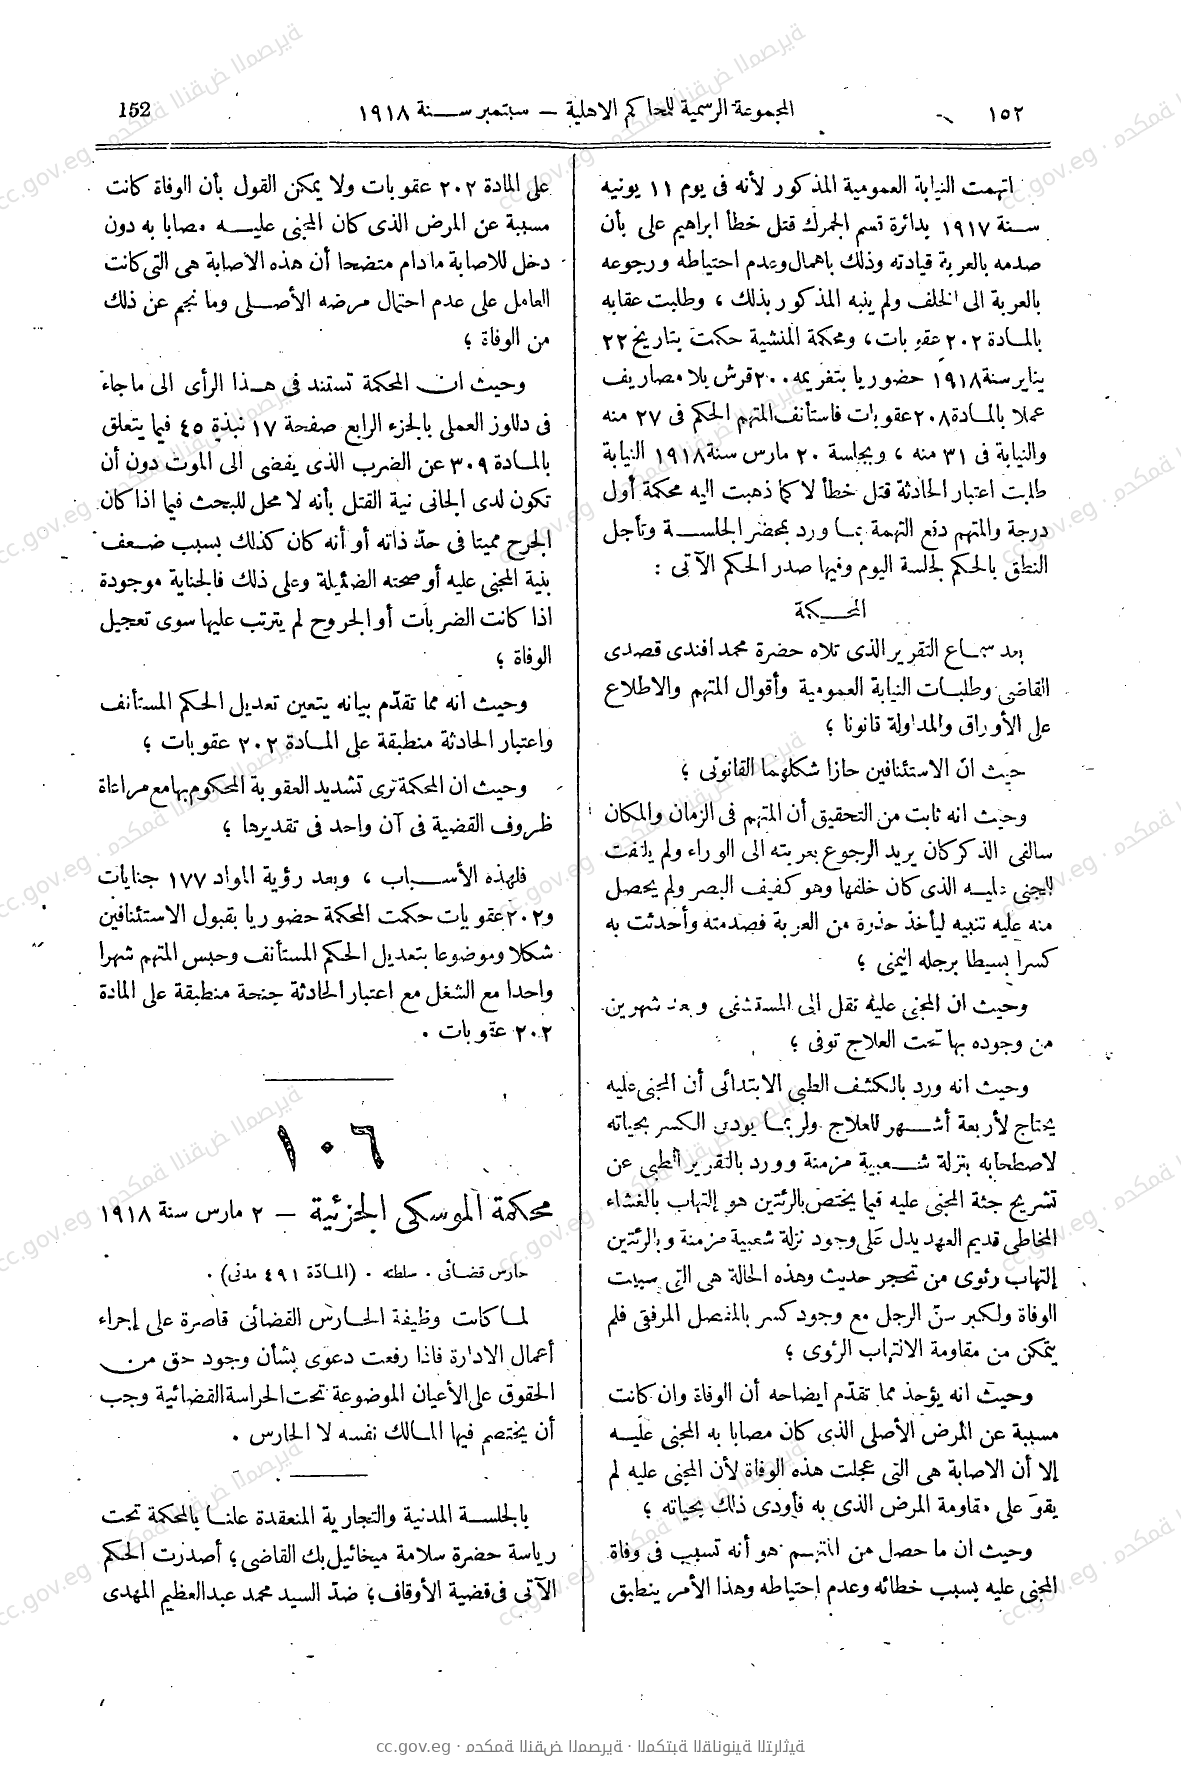 ١٥٢
المجموعة الرسمية للمحاكم الاهلية – سبتمبر سنة ١٩١٨
152
اتهمت النيابة العمومية المذكور لأنه فى يوم ١١ يونيه
سنة ١٩١٧ بدائرة قسم الجمرك قتل خطأ ابراهيم على بأن
صدمه بالعربة قيادته وذلك باهمال وعدم احتياطه ورجوعه
بالعربة الى الخلف ولم ينبه المذكور بذلك ، وطلبت عقابه
بالمادة ٢٠٢ عقوبات ، ومحكمة المنشية حكمت بتاريخ ٢٢
يناير سنة ١٩١٨ حضوريا بتغريمه ٢٠٠ قرش بلا مصاريف
عملا بالمادة ٢٠٨ عقوبات فاستأنف المتهم الحكم فى ٢٧ منه
والنيابة فى ٣١ منه ، وبجلسة ٢٠ مارس سنة ١٩١٨ النيابة
طلبت اعتبار الحادثة قتل خطأ لا كما ذهبت اليه محكمة أول
درجة والمتهم دفع التهمة بما ورد بمحضر الجلسة وتأجل
النطق بالحكم لجلسة اليوم وفيها صدر الحكم الآتى :
المحكمة
بعد سماع التقرير الذى تلاه حضرة محمد افندى قصدى
القاضى وطلبات النيابة العمومية وأقوال المتهم والاطلاع
على الأوراق والمداولة قانونا ؛
حيث ان الاستئنافين حازا شكلهما القانونى ؛
وحيث انه ثابت من التحقيق أن المتهم فى الزمان والمكان
سالفى الذكر كان يريد الرجوع بعربته الى الوراء ولم يلتفت
للمجنى عليه الذى كان خلفها وهو كفيف البصر ولم يحصل
منه عليه تنبيه ليأخذ حذره من العربة فصدمته وأحدثت به
كسرا بسيطا برجله اليمنى ؛
وحيث ان المجنى عليه نقل الى المستشفى وبعد شهرين
من وجوده بها تحت العلاج توفى ؛
وحيث انه ورد بالكشف الطبى الابتدائى أن المجنى عليه
يحتاج لأربعة أشهر للعلاج ولربما يودى الكسر بحياته
لاصطحابه بنزلة شعبية مزمنة وورد بالتقرير الطبى عن
تشريح جثة المجنى عليه فيما يختص بالرئتين هو إلتهاب بالغشاء
المخاطى قديم العهد يدل على وجود نزلة شعبية مزمنة وبالرئتين
إلتهاب رئوى من تحجر حديث وهذه الحالة هى التى سببت
الوفاة ولكبر سنّ الرجل مع وجود كسر بالمفصل المرفقى فلم
يتمكن من مقاومة الالتهاب الرئوى ؛
وحيث انه يؤخذ مما تقدّم ايضاحه أن الوفاة وان كانت
مسببة عن المرض الأصلى الذى كان مصابا به المجنى عليه
إلا أن الاصابة هى التى عجلت هذه الوفاة لأن المجنى عليه لم
يقو على مقاومة المرض الذى به فأودى ذلك بحياته ؛
وحيث ان ما حصل من المتهم هو أنه تسبب فى وفاة
المجنى عليه بسبب خطائه وعدم إحتياطه وهذا الأمر ينطبق
على المادة ٢٠٢ عقوبات ولا يمكن القول بأن الوفاة كانت
مسببة عن المرض الذى كان المجنى عليه مصابا به دون
دخل للاصابة ما دام متضحا أن هذه الاصابة هى التى كانت
العامل على عدم احتمال مرضه الأصلى وما نجم عن ذلك
من الوفاة ؛
وحيث ان المحكمة تستند فى هذا الرأى الى ما جاء
فى دللوز العملى بالجزء الرابع صفحة ١٧ نبذة ٤٥ فيما يتعلق
بالمادة ٣٠٩ عن الضرب الذى يفضى الى الموت دون أن
تكون لدى الجانى نية القتل بأنه لا محل للبحث فيما اذا كان
الجرح مميتا فى حدّ ذاته أو أنه كان كذلك بسبب ضعف
بنية المجنى عليه أو صحته الضئيلة وعلى ذلك فالجناية موجودة
اذا كانت الضربات أو الجروح لم يترتب عليها سوى تعجيل
الوفاة ؛
وحيث انه مما تقدّم بيانه يتعين تعديل الحكم المستأنف
واعتبار الحادثة منطبقة على المادة ٢٠٢ عقوبات ؛
وحيث ان المحكمة ترى تشديد العقوبة المحكوم بها مع مراعاة
ظروف القضية فى آن واحد فى تقديرها ؛
فلهذه الأسباب ، وبعد رؤية المواد ١٧٧ جنايات
و٢٠٢ عقوبات حكمت المحكمة حضوريا بقبول الاستئنافين
شكلا وموضوعا بتعديل الحكم المستأنف وحبس المتهم شهرا
واحدا مع الشغل مع اعتبار الحادثة جنحة منطبقة على المادة
٢٠٢ عقوبات .
١٠٦
محكمة الموسكى الجزئية – ٢ مارس سنة ١٩١٨
حارس قضائى . سلطته . (المادّة ٤٩١ مدنى) .
لما كانت وظيفة الحارس القضائى قاصرة على إجراء
أعمال الادارة فاذا رفعت دعوى بشأن وجود حق من
الحقوق على الأعيان الموضوعة تحت الحراسة القضائية وجب
أن يختصم فيها المالك نفسه لا الحارس .
بالجلسة المدنية والتجارية المنعقدة علنا بالمحكمة تحت
رياسة حضرة سلامة ميخائيل بك القاضى ؛ أصدرت الحكم
الآتى فى قضية الأوقاف ؛ ضدّ السيد محمد عبد العظيم المهدى
cc.gov.eg · محكمة النقض المصرية · المكتبة القانونية التراثية